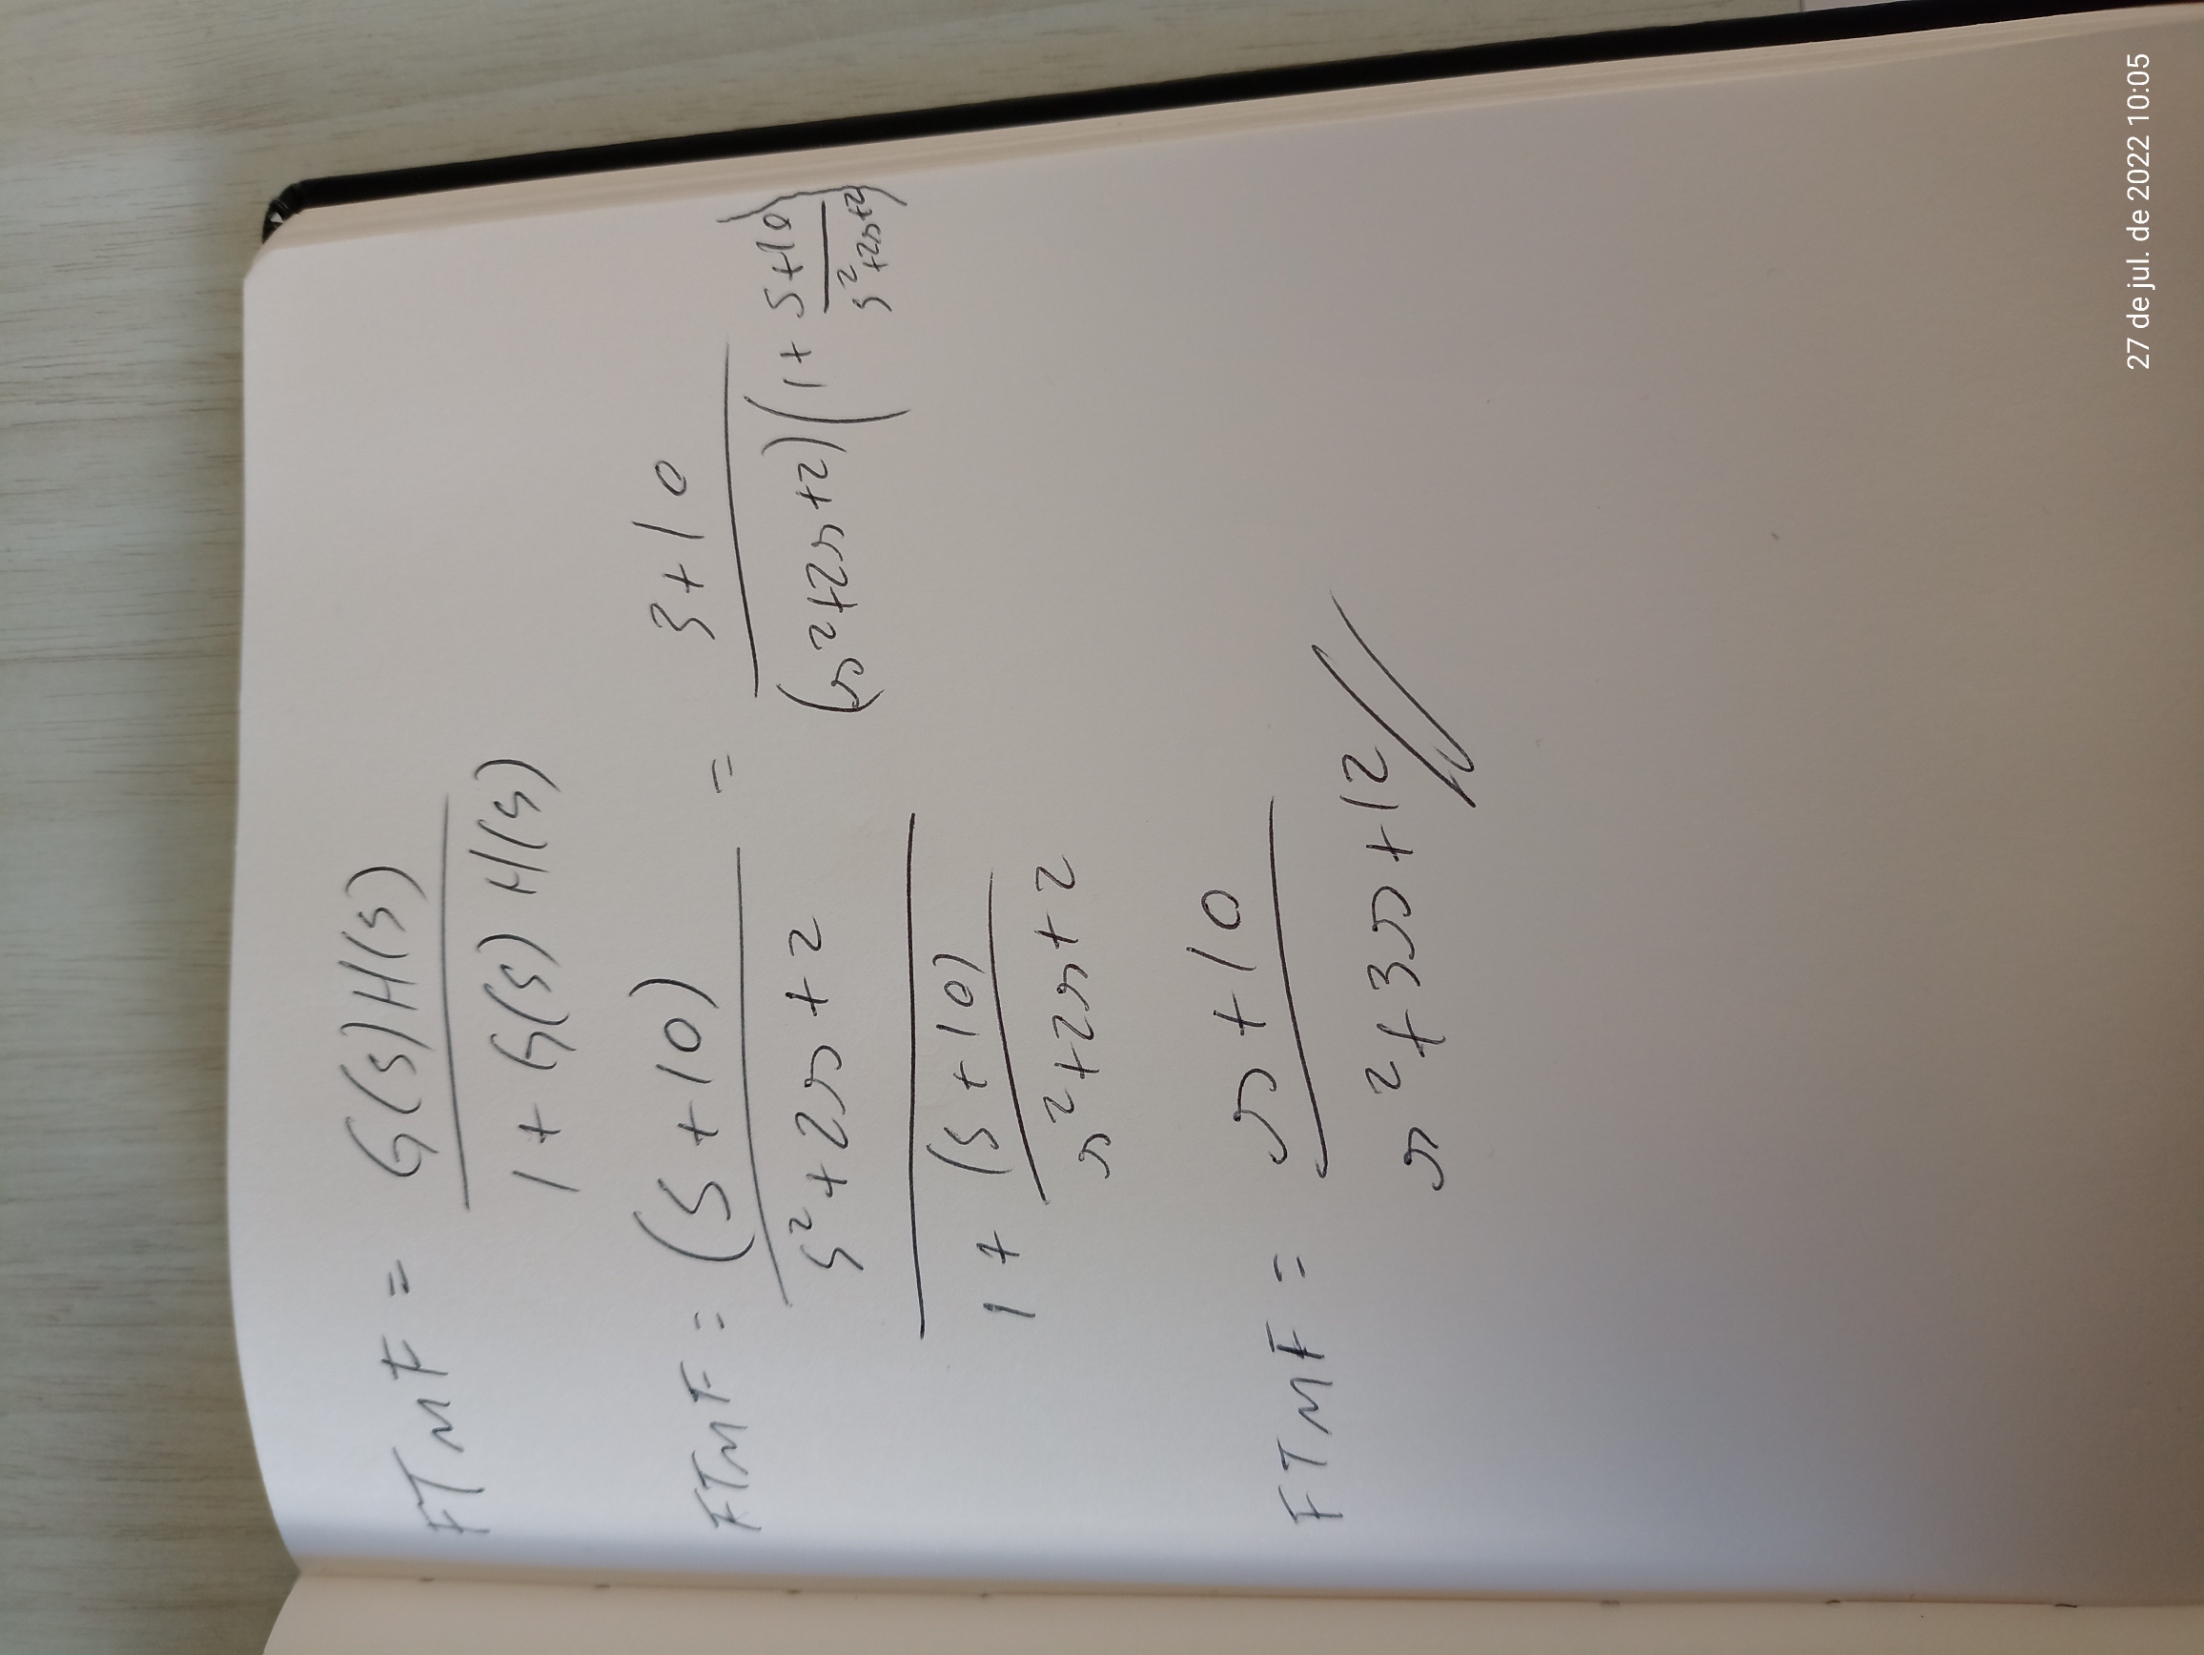 FTMF = G(s)H(s)
1 + G(s) H(s)
FTMF = (s+10) = s+10
s²+2s+2 (s²+2s+2)(1+ s+10
s²+2s+2)
1 + (s+10)
s²+2s+2
FTMF = s+10
s²+3s+12
27 de jul. de 2022 10:05